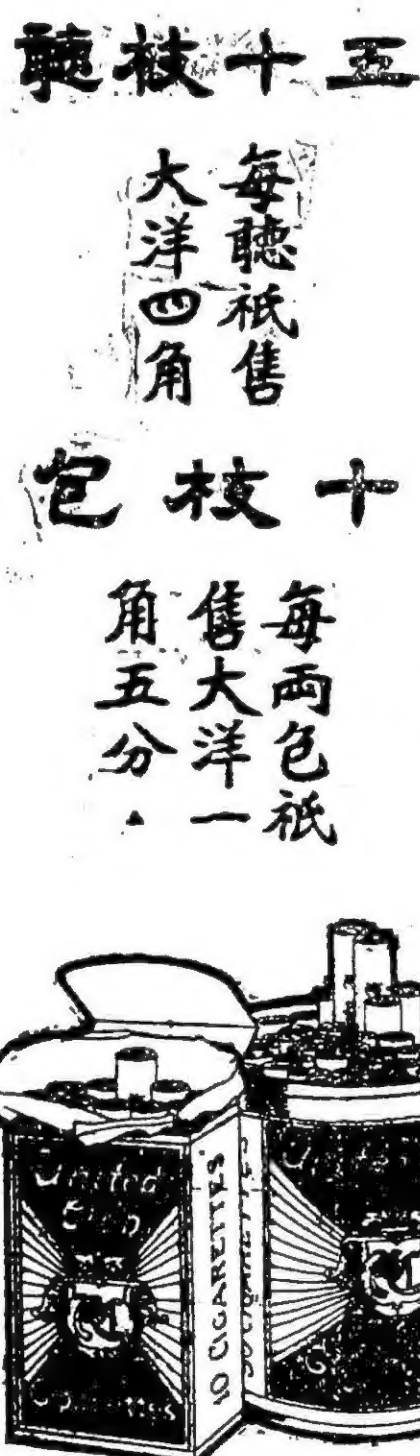 五十枝聽
每聽祇售
大洋四角
十枝包
每兩包祇
售大洋一
角五分▲
United
Cigarettes
10 CIGARETTES
50 CIGARETTES